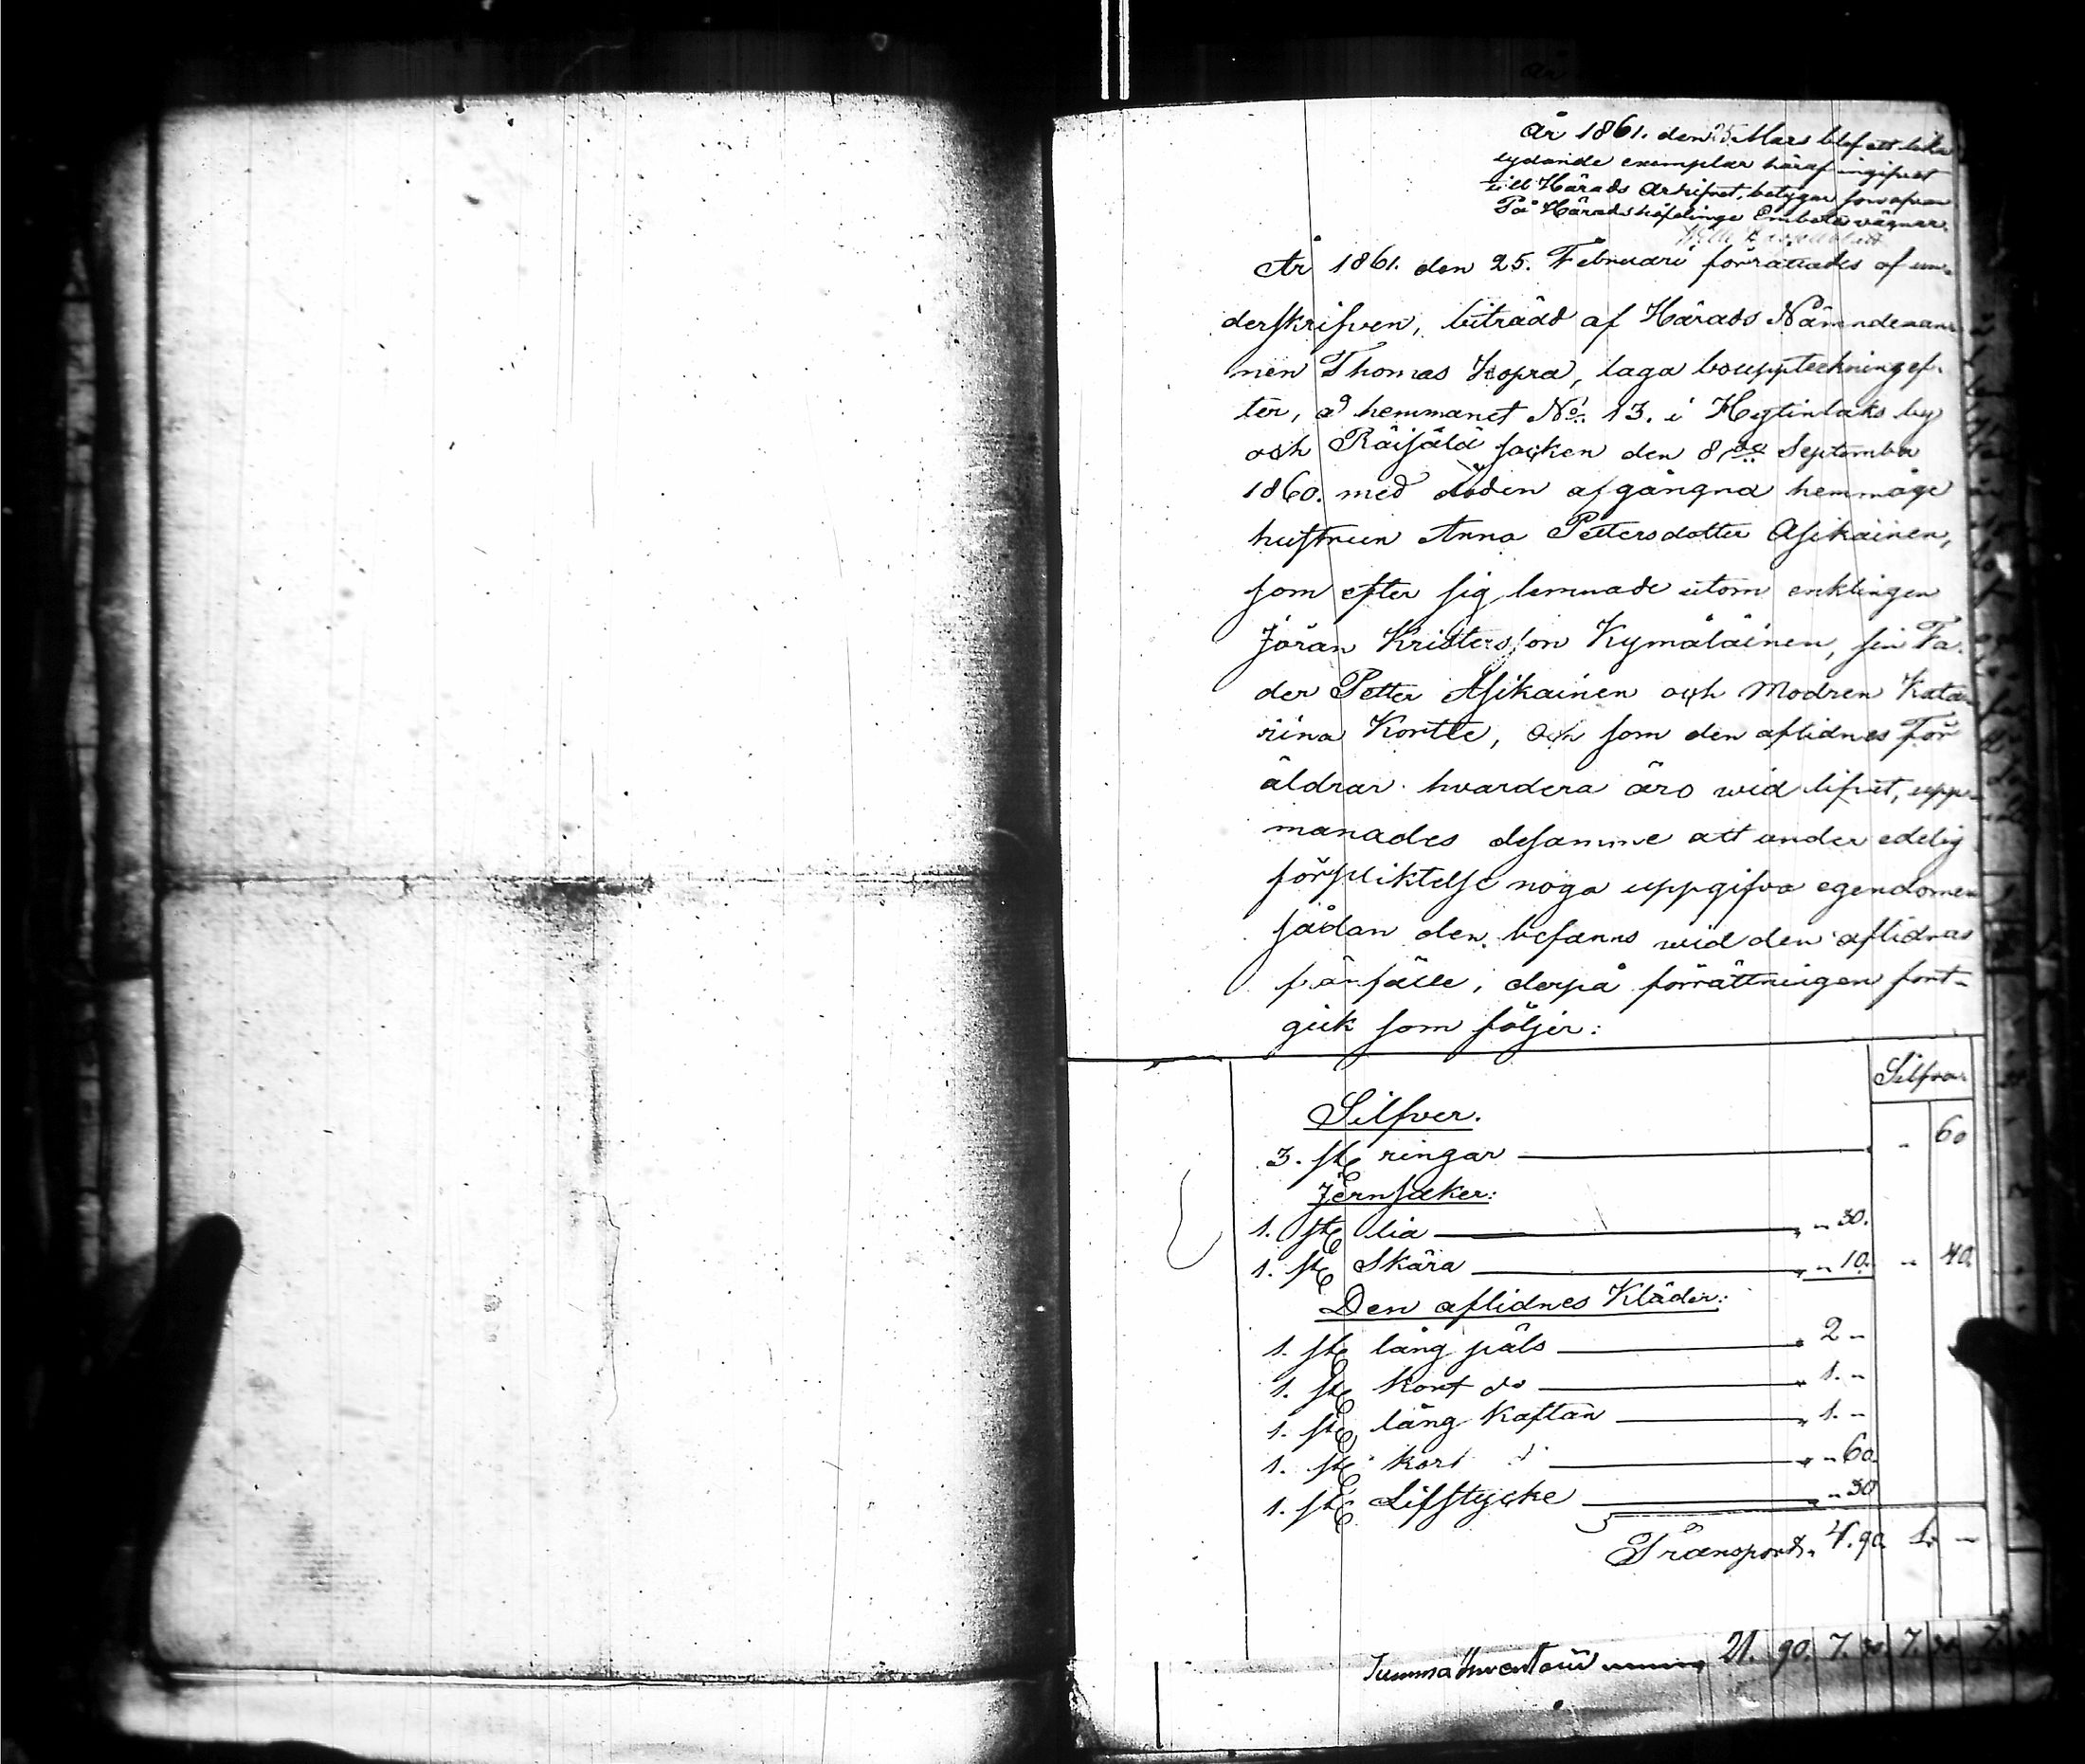 År 1861. den 25 Mars blef ett lika
lydande exemplar häraf ingifvet
till Härads Arkifvet, betygar
På Häradshöfdinge Embets vägnar.
År 1861. den 25. Februari förrättades af un-
derskrifven, biträdd af Härads Nämndeman-
nen Thomas Kopra, laga bouppteckning ef-
ter, å hemmanet No. 13. i Hytinlaks by
och Räisälä socken den 8de September
1860. med döden afgångna hemmäge
hustrun Anna Pettersdotter Asikainen,
som efter sig lemnade utom enklingen
Jöran Kristersson Kymäläinen, sin Fa-
der Petter Asikainen och Modren Kata-
riina Kortte, och som den aflidnes För
äldrar hvardera äro wid lifvet, upp-
manades desamme att under edelig
förpliktelse noga uppgifva egendomen
sådan den befanns wid den aflidnas
frånfälle, derpå förrättningen fort-
gick som följer:
Silfver.
Silfver.
3. st ringar — - 60
Jernsaker:
1. st lia — " - 30.
1. st Skära — " - 10. - 40.
Den aflidnes Kläder:
1. st lång päls — " 2 -
1. st kort do — " 1. -
1. st lång Kaftan — " 1. -
1. st kort — " - 60.
1. st Lifstycke — " - 30
Transport. 4. 90. 1. —
Summa Inventarii 21. 90. 7. 7. 7.